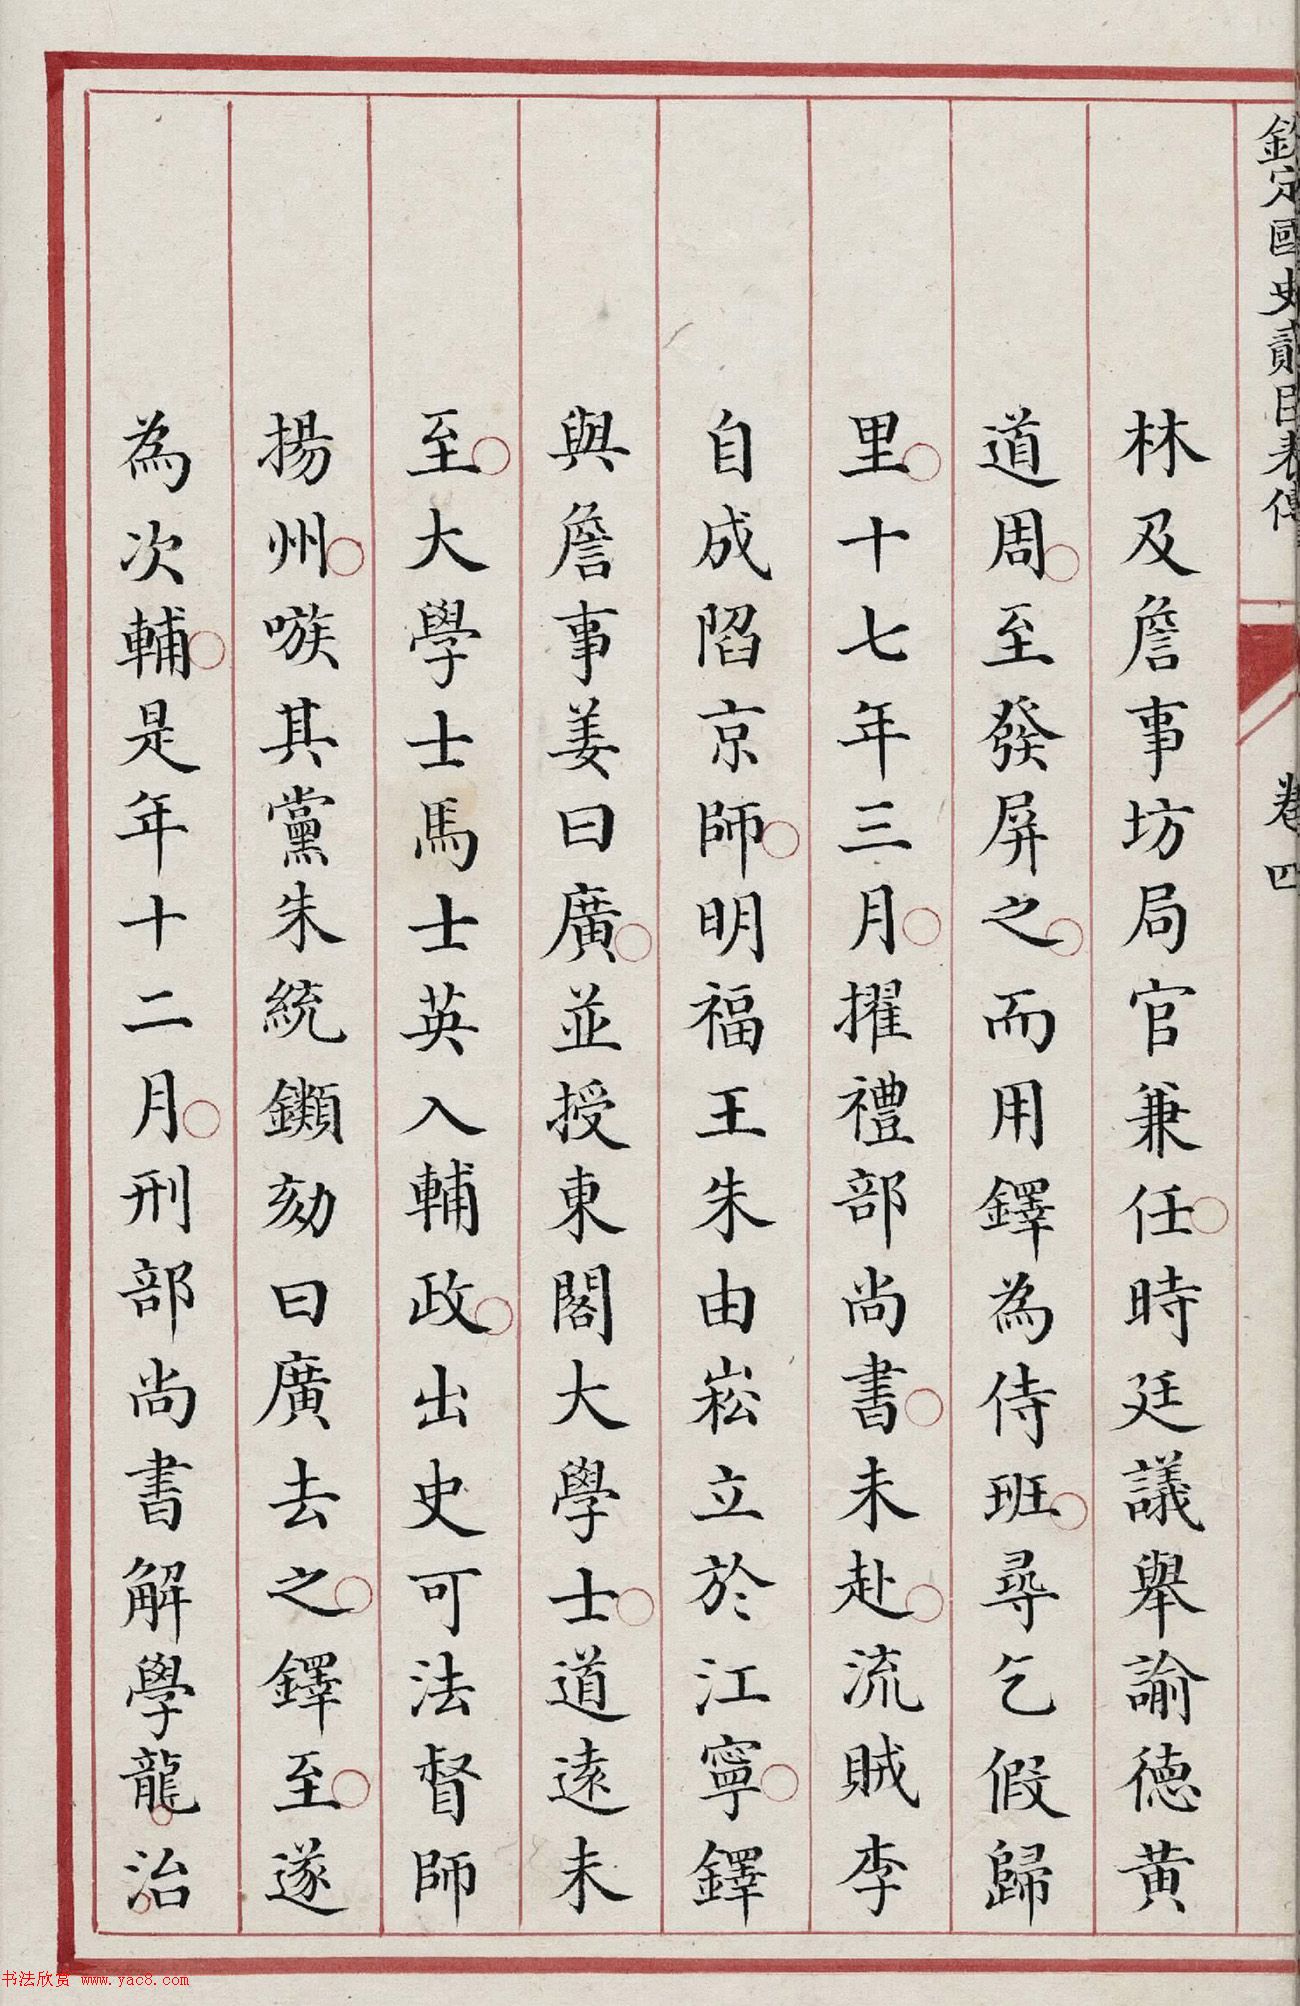 欽定國史貳臣表傳
卷四
林及詹事坊局官兼任時廷議舉諭德黃
道周至發屏之而用鐸為侍班尋乞假歸
里十七年三月擢禮部尚書未赴流賊李
自成陷京師明福王朱由崧立於江寧鐸
與詹事姜曰廣並授東閣大學士道遠未
至大學士馬士英入輔政出史可法督師
揚州嗾其黨朱統鑡劾曰廣去之鐸至遂
為次輔是年十二月刑部尚書解學龍治
书法欣赏 www.yac8.com